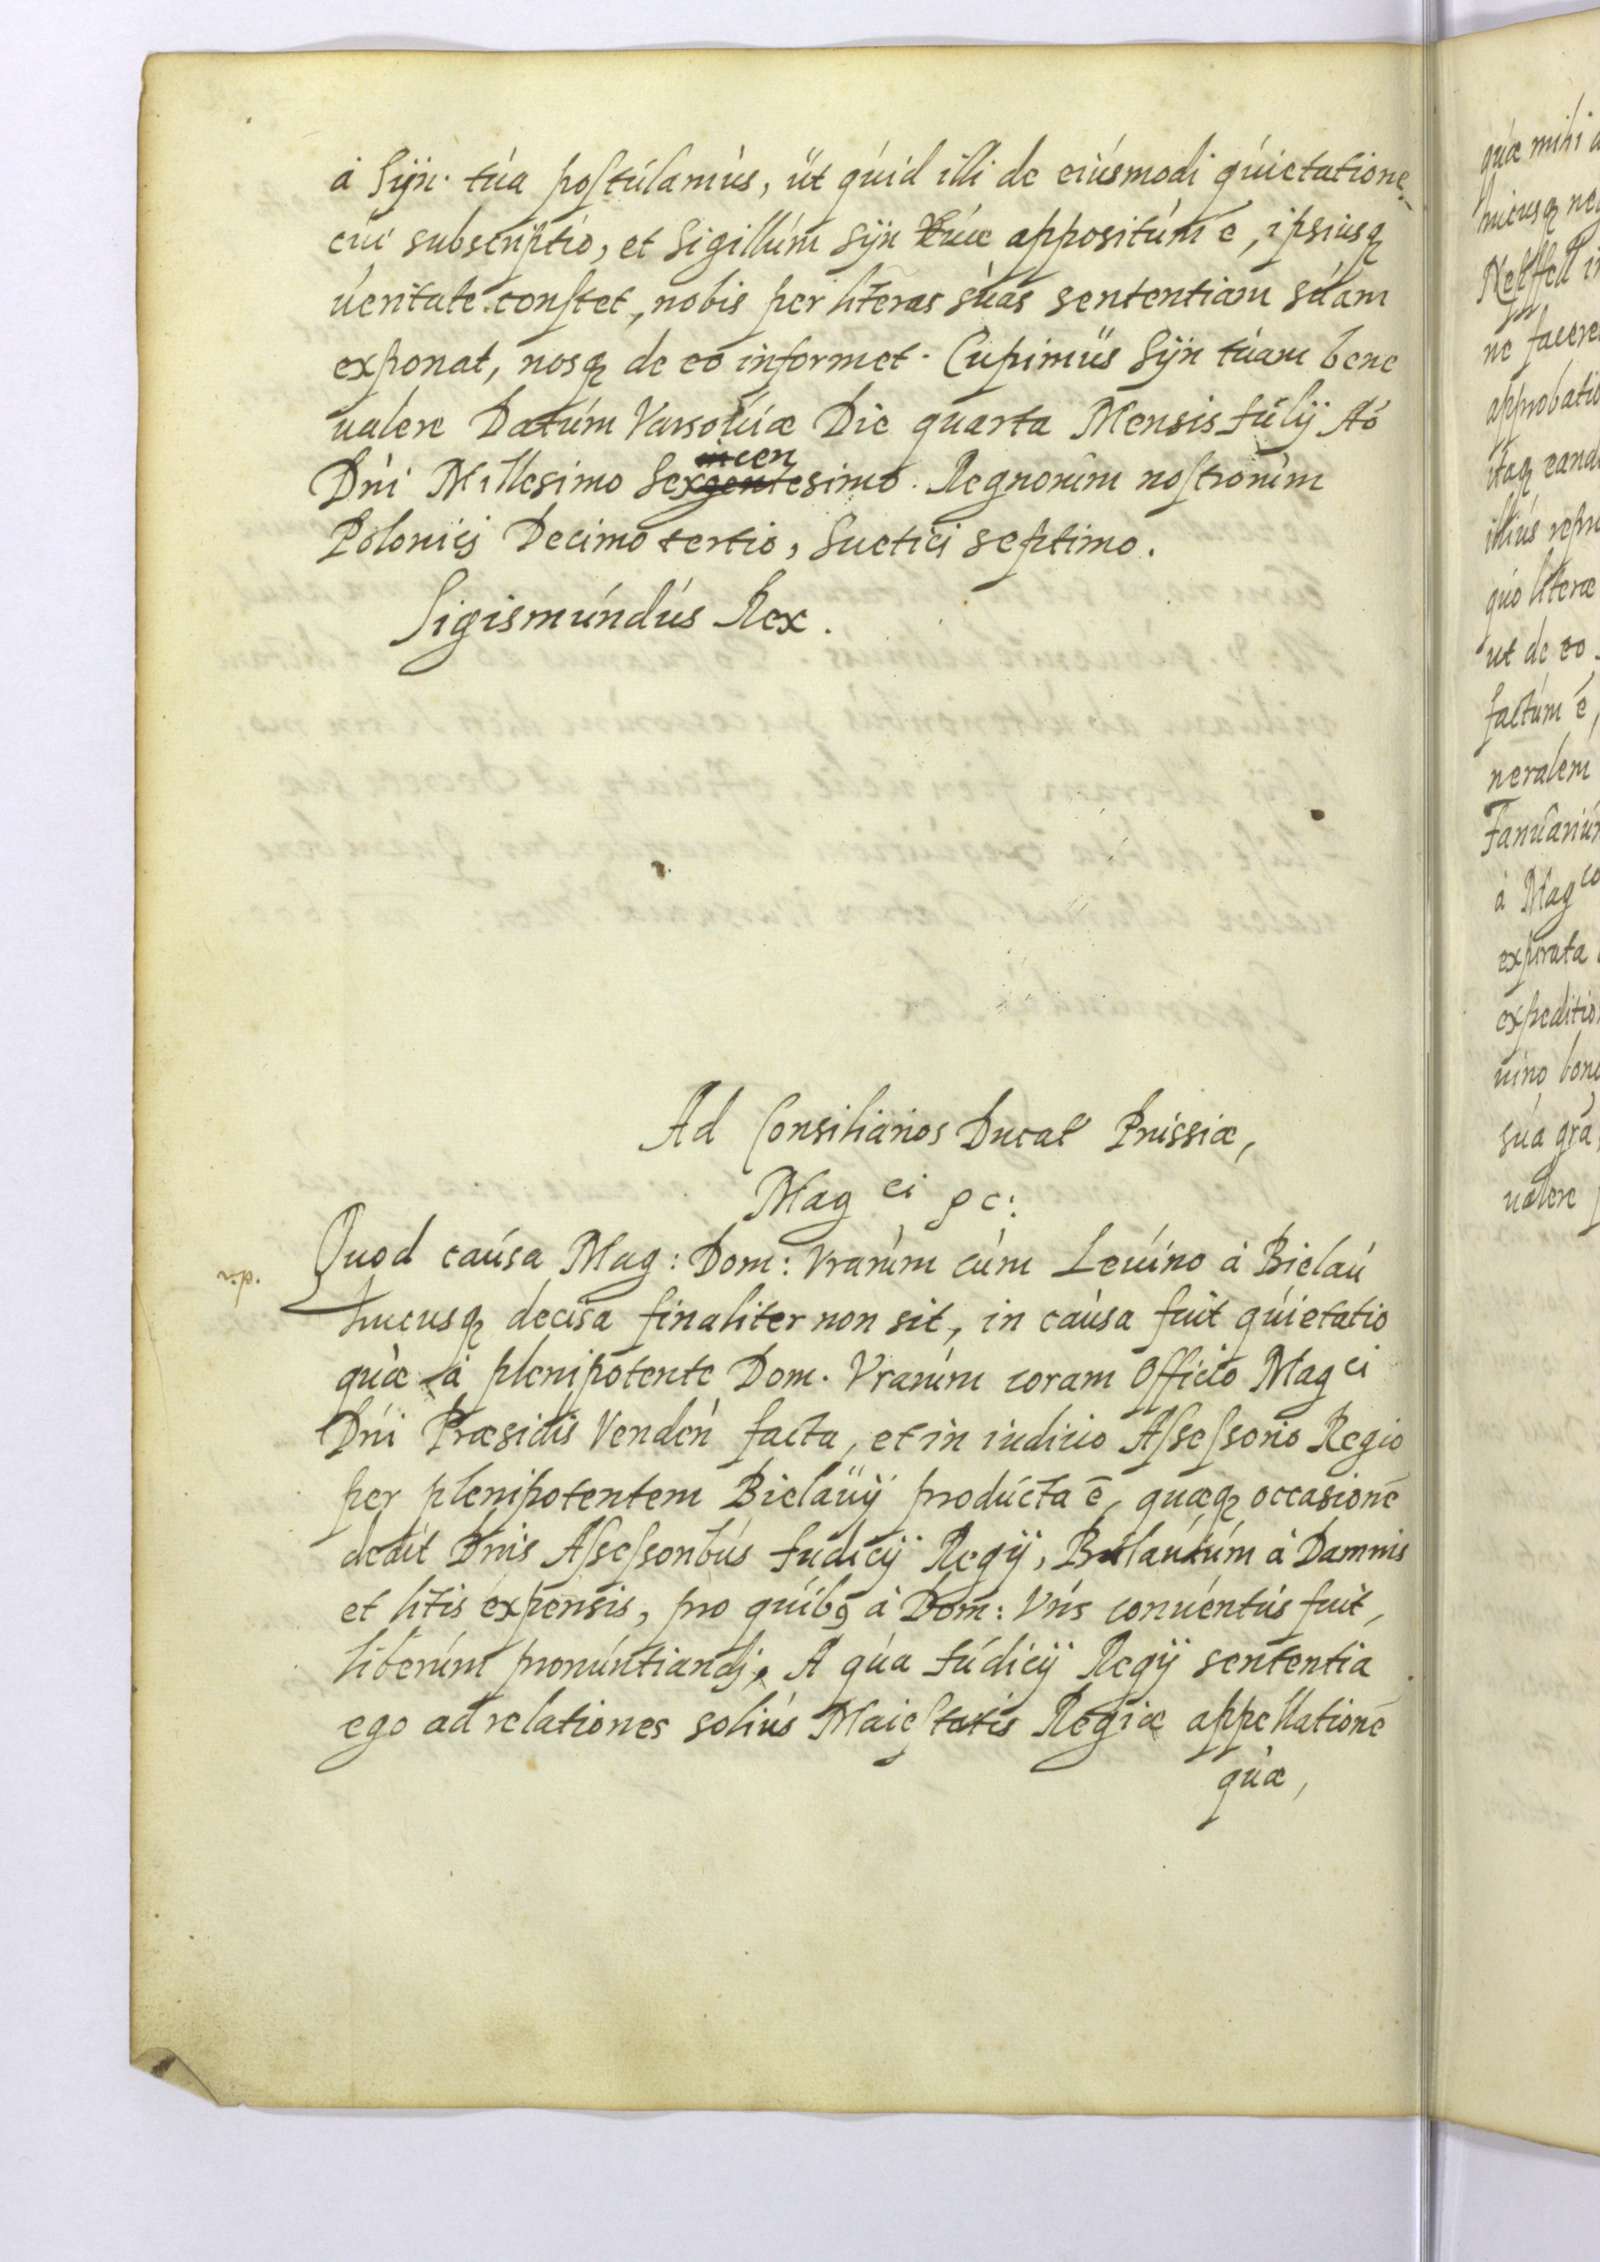 à Sÿn. túa postúlamùs, üt qúid illi de eiúsmodi qúietatione,
cúi subscriptio, et Sigillúm Sÿn túæ appositúm ē, ipsiusq
úeritate constet, nobis per lr̃eras sùas sententiam súam
exponat, nosq de eo informet. Cupimüs Sÿn túam bene
ualere Datúm Varsoúiæ Die quarta Mensis Júlÿ Aō
Dńi Millesimo Sexcentesimo. Regnorúm nostrorúm
Polonicj Decimo tertio, Suetici septimo.
Sigismúndús Rex.
Ad Consiliarios Ducat Prússiæ,
Mag ci pc:
Quod caúsa Mag: Dom: Vrarúm cúm Leúino à Bielaú
hucusq decisa finaliter non sit, in caùsa fuit qúietatio
qùæ à plenipotente Dom. Vrarúm coram Officio Mag ci
Dńi Præsidis Vendeń facta, et in iudicio Assessorio Regio
per plenipotentem Bielaüÿ prodúcta ē, quæq occasionē
dedit Dńis Assessoribús Júdicÿ Regÿ, Bielaúiúm à Damnis
et litis expensis, pro qúibꝫ à Dom: Vrís conúentús fuit,
liberúm pronúntiandj. A qúa Júdicÿ Regÿ sententia
ego ad relationes soliús Maiestatis Regiæ appellationē
qùæ,
quæ mihi
hucusq
ne facere
approbatio
itaq eand
illiús
quo literæ
ut de eo
factúm ē,
neralem
Januariúm
à Mag co
expirata
expeditio
uino bono
súa gr̃a,
ualere